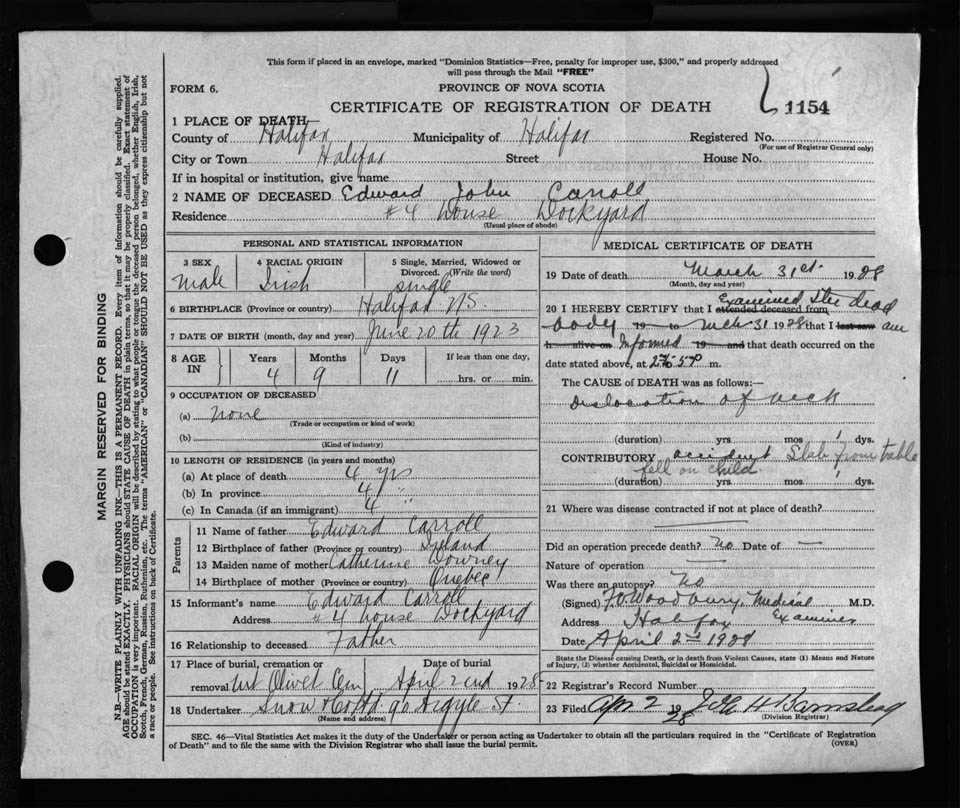 This form if placed in an envelope, marked "Dominion Statistics—Free, penalty for improper use, $300," and properly addressed
will pass through the Mail "FREE"
FORM 6.
PROVINCE OF NOVA SCOTIA
CERTIFICATE OF REGISTRATION OF DEATH
1154
1 PLACE OF DEATH—
County of Halifax Municipality of Halifax Registered No.
(For use of Registrar General only)
City or Town Halifax Street House No.
If in hospital or institution, give name
2 NAME OF DECEASED Edward John Carroll
Residence #4 house Dockyard
(Usual place of abode)
PERSONAL AND STATISTICAL INFORMATION
3 SEX 4 RACIAL ORIGIN 5 Single, Married, Widowed or
Divorced. (Write the word)
Male Irish single
6 BIRTHPLACE (Province or country) Halifax NS.
7 DATE OF BIRTH (month, day and year) June 20th 1923
8 AGE IN Years Months Days If less than one day,
4 9 11 hrs. or min.
9 OCCUPATION OF DECEASED
(a) none
(Trade or occupation or kind of work)
(b)
(Kind of industry)
10 LENGTH OF RESIDENCE (in years and months)
(a) At place of death 4 yrs
(b) In province 4 "
(c) In Canada (if an immigrant) 4
Parents
11 Name of father Edward Carroll
12 Birthplace of father (Province or country) Ireland
13 Maiden name of mother Catherine Downey
14 Birthplace of mother (Province or country) Quebec
15 Informant's name Edward Carroll
Address #4 house Dockyard
16 Relationship to deceased Father
17 Place of burial, cremation or Date of burial
removal Mt Olivet Cem April 2nd 1928
18 Undertaker Snow & Co Ltd 90 Argyle St.
(Name and address)
MEDICAL CERTIFICATE OF DEATH
19 Date of death March 31st 1928
(Month, day and year)
Examined the dead
20 I HEREBY CERTIFY that I attended deceased from
body 19 to Mch 31 1928 that I last saw am
h alive on Informed 19 and that death occurred on
date stated above, at m.
The CAUSE OF DEATH was as follows:—
Dislocation of neck
(duration) yrs mos dys.
CONTRIBUTORY accident Slab from table
fell on child
(duration) yrs. mos. dys.
21 Where was disease contracted if not at place of death?
Did an operation precede death? No Date of —
Nature of operation —
Was there an autopsy? No
(Signed) F.O. Woodbury Medical M.D.
Address Halifax Examiner
Date April 2nd 1928
State the Disease causing Death, or in death from Violent Causes, state (1) Means and Nature
of Injury, (2) whether Accidental, Suicidal or Homicidal.
22 Registrar's Record Number
23 Filed Apr 2 1928 H Barnstead
(Division Registrar)
SEC. 46—Vital Statistics Act makes it the duty of the Undertaker or person acting as Undertaker to obtain all the particulars required in the "Certificate of Registration
of Death" and to file the same with the Division Registrar who shall issue the burial permit.
(OVER)
MARGIN RESERVED FOR BINDING
N.B.—WRITE PLAINLY WITH UNFADING INK—THIS IS A PERMANENT RECORD. Every item of information should be carefully supplied.
AGE should be stated EXACTLY. PHYSICIANS should STATE CAUSE OF DEATH in plain terms, so that it may be properly classified. Exact statement of
OCCUPATION is very important. RACIAL ORIGIN will be described by stating to what people or tongue the deceased person belonged, whether English, Irish,
Scotch, French, German, Russian, Ruthenian, etc. The terms "AMERICAN" or "CANADIAN" SHOULD NOT BE USED as they express citizenship but not
a race or people. See instructions on back of Certificate.